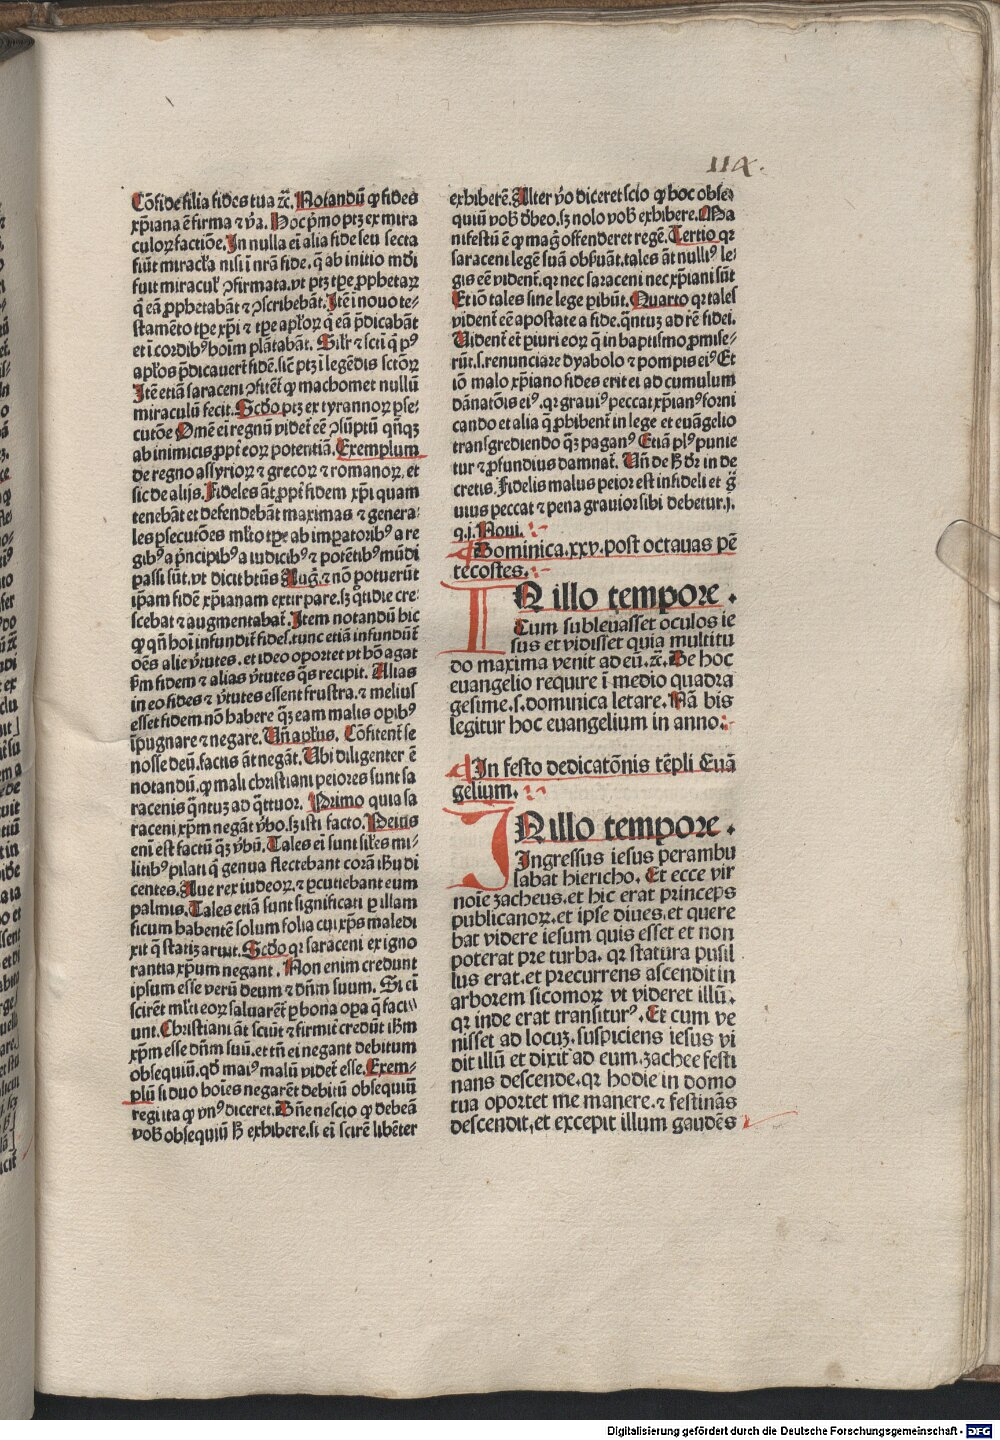 114.
Cōfide filia fides tua ⁊c̄. Notandū ꝙ fides
xp̄iana ē firma ⁊ v̄a. Hoc pͥmo ptꝫ ex mira
culoꝝ factiōe. In nulla ei̅ alia fide seu secta
fiūt miracl̕a nisi ī nr̄a fide. q̄ ab initio mūdi
fuit miracul̕ ↄfirmata. vt ptꝫ tꝑe ꝓphetaꝝ
q̄ eā ꝓphetabāt ⁊ ↄscribebāt. Itē ī nouo te-
stamēto tꝑe xp̄i ⁊ tꝑe apl̕oꝝ q̄ eā p̄dicabāt
et ī cordibꝰ hoīm plātabāt. Sil̕r ⁊ scti̅ q̄ pꝰ
apl̕os p̄dicauert̄ fidē. sic̄ ptꝫ ī legēdis sctōꝝ
Itē etiā saraceni ↄfitēt̄ ꝙ machomet nullū
miraculū fecit. Scd̕o ptꝫ ex tyrannoꝝ ꝑse-
cutōe Omē ei̅ regnū videt̄ eē ↄsūptū qn̄qꝫ
ab inimicis ꝓpt̄ eoꝝ potentiā. Exemplum
de regno assyrioꝝ ⁊ grecoꝝ ⁊ romanoꝝ. et
sic de alijs. Fideles āt ꝓpt̄ fidem xp̄i quam
tenebāt et defendebāt maximas ⁊ genera-
les ꝑsecutōes ml̕to tꝑe ab imꝑatoribꝰ a re
gibꝰ a pͥncipibꝰ a iudicibꝰ ⁊ potētibꝰ mūdi
passi sūt. vt dicit btūs Aug̕. ⁊ nō potuerūt
ip̄am fidē xp̄ianam extirpare. sꝫ q̄tidie cre-
scebat ⁊ augmentabat̄. Item notandū hic
ꝙ qn̄ hoī infundit̄ fides. tunc etiā infundūt̄
oēs alie v̕tutes. et ideo oportet vt hō agat
ẜm fidem ⁊ alias v̕tutes q̄s recipit. Alias
in eo fides ⁊ v̕tutes essent frustra. ⁊ melius
esset fidem nō habere qꝫ eam malis oꝑibꝰ
īpugnare ⁊ negare. Vn̄ apl̕us. Cōfitent̄ se
nosse deū. factis āt negāt. Vbi diligenter ē
notandū. ꝙ mali christiani peiores sunt sa
racenis q̄ntuꝫ ad q̄ttuor. Primo quia sa
raceni xp̄m negāt v̕bo. sꝫ isti facto. Peius
eni̅ est factū qꝫ v̕bū. Tales ei̅ sunt sil̕es mi-
litibꝰ pilati q̄ genua flectebant corā ih̄u di
centes. Aue rex iudeoꝝ. ⁊ ꝑcutiebant eum
palmis. Tales etiā sunt significati ꝑ illam
ficum habentē solum folia cui xp̄s maledi
xit q̄ statī aruit. Scd̕o qꝛ saraceni ex igno
rantia xp̄um negant. Non enim credunt
ipsum esse verū deum ⁊ dn̄m suum. Si ei̅
scirēt ml̕ti eoꝝ saluarēt̄ ꝑ bona oꝑa q̄ faci-
unt. Christiani āt sciūt ⁊ firmit̄ credūt ih̄m
xp̄m esse dn̄m suū. et tn̄ ei negant debitum
obsequiū. qd̕ maiꝰ malū videt̄ esse. Exem-
plū si duo hoīes negarēt debitū obsequiū
regi ita ꝙ vnꝰ diceret. Bn̄e nescio ꝙ debeā
vob̄ obsequiū ꝧ exhibere. si ei̅ scirē libēter
exhiberē. Alter v̕o diceret scio ꝙ hoc obse-
quiū vob̄ dͪeo. sꝫ nolo vob̄ exhibere. Ma
nifestū ē ꝙ mag̕ offenderet regē. Tertio qꝛ
saraceni legē suā obẜuāt. tales āt nulliꝰ le-
gis eē vident̄. qꝛ nec saraceni nec xp̄iani sūt
Et iō tales sine lege ꝑibūt. Quarto qꝛ tales
vident̄ eē apostate a fide. q̄ntuꝫ ad rē fidei.
Vident̄ et̄ ꝑiuri eoꝝ q̄ in baptismo ꝓmise-
rūt. s. renunciare dyabolo ⁊ pompis eiꝰ Et
iō malo xp̄iano fides erit ei ad cumulum
dānatōis eiꝰ. qꝛ grauiꝰ peccat xp̄ianꝰ forni
cando et alia q̄ ꝓhibent̄ in lege et euāgelio
transgrediendo qꝫ paganꝰ Etiā plꝰ punie
tur ⁊ ꝓfundius damnat̄. Vn̄ de ꝧ dr̄ in de
cretis. Fidelis malus peior est infideli et g̕
uius peccat ⁊ pena grauior sibi debetur. j.
q. j. Noui.
Dominica. xxv. post octauas pē
tecostes.
IN illo tempore.
Cum subleuasset oculos ie
sus et vidisset quia multitu
do maxima venit ad eū. ⁊c̄. De hoc
euangelio require ī medio quadra
gesime. s. dominica letare. Nā bis
legitur hoc euangelium in anno.
In festo dedicatōnis tēpli Euā
gelium.
IN illo tempore.
Ingressus iesus perambu
labat hiericho. Et ecce vir
noīe zacheus. et hic erat princeps
publicanoꝝ. et ipse diues. et quere
bat videre iesum quis esset et non
poterat pre turba. qꝛ statura pusil
lus erat. et precurrens ascendit in
arborem sicomoꝝ vt videret illū.
qꝛ inde erat transiturꝰ. Et cum ve
nisset ad locuꝫ. suspiciens iesus vi
dit illū et dixit ad eum. zachee festi
nans descende. qꝛ hodie in domo
tua oportet me manere. ⁊ festinās
descendit. et excepit illum gaudēs
Digitalisierung gefördert durch die Deutsche Forschungsgemeinschaft - DFG